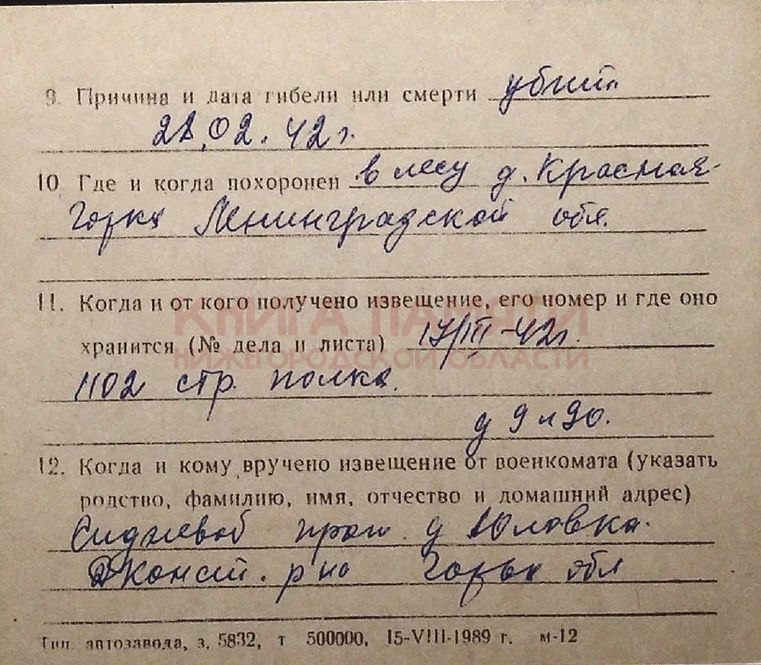 9. Причина и дата гибели или смерти убит
28.02.42 г.
10 Где и когда похоронен в лесу д. Красная
Горка Ленинградской обл.
11. Когда и от кого получено извещение, его номер и где оно
хранится (№ дела и листа) 17/III-42г.
КНИГА ПАМЯТИ
НИЖЕГОРОДСКОЙ ОБЛАСТИ
1102 стр. полка.
д 9 л 90.
12. Когда и кому вручено извещение от военкомата (указать
родство, фамилию, имя, отчество и домашний адрес)
прож. д Юловка.
Дконст. р-но Горьк обл
Тип. автозавода, з. 5832, т 500000, 15-VIII-1989 г. м-12